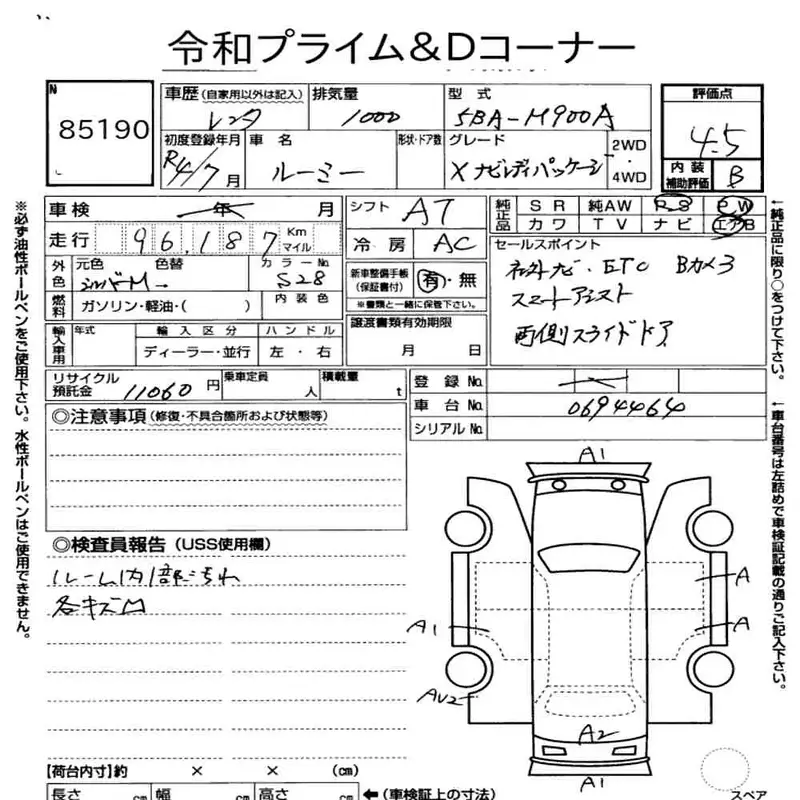 令和プライム&Dコーナー
N
85190
車歴 (自家用以外は記入) レンタ
排気量 1000
型式 5BA-M900A
評価点 4.5
初度登録年月 R4/7月
車名 ルーミー
形状・ドア数
グレード Xナビレディパッケージ
2WD
・
4WD
内装
補助評価 B
車検 年 月
シフト AT
純正品 SR 純AW PS PW
カワ TV ナビ エアB
走行 96,187 Km
マイル
冷房 AC
セールスポイント
外色 元色 シルバーM 色替 カラーNo. S28
新車整備手帳
(保証書付) 有・無
※書類と一緒に保管下さい。
ナビ・ETC Bカメラ
スマートアシスト
両側スライドドア
燃料 ガソリン・軽油・( ) 内装色
譲渡書類有効期限
月 日
輸入車用 年式 輸入区分 ハンドル
ディーラー・並行 左・右
リサイクル
預託金 11060 円
乗車定員 人
積載量 t
登録No.
車台No. 0694464
シリアルNo.
◎注意事項 (修復・不具合箇所および状態等)
◎検査員報告 (USS使用欄)
ルーム内1部汚れ
各キズ凹
A1
A
A1
A
AU2
A2
A1
【荷台内寸】約 × × (cm)
長さ cm 幅 cm 高さ cm
←(車検証上の寸法)
スペア
※必ず油性ボールペンをご使用下さい。水性ボールペンはご使用できません。
←純正品に限り○をつけて下さい。
←車台番号は左詰めで車検証記載の通りご記入下さい。